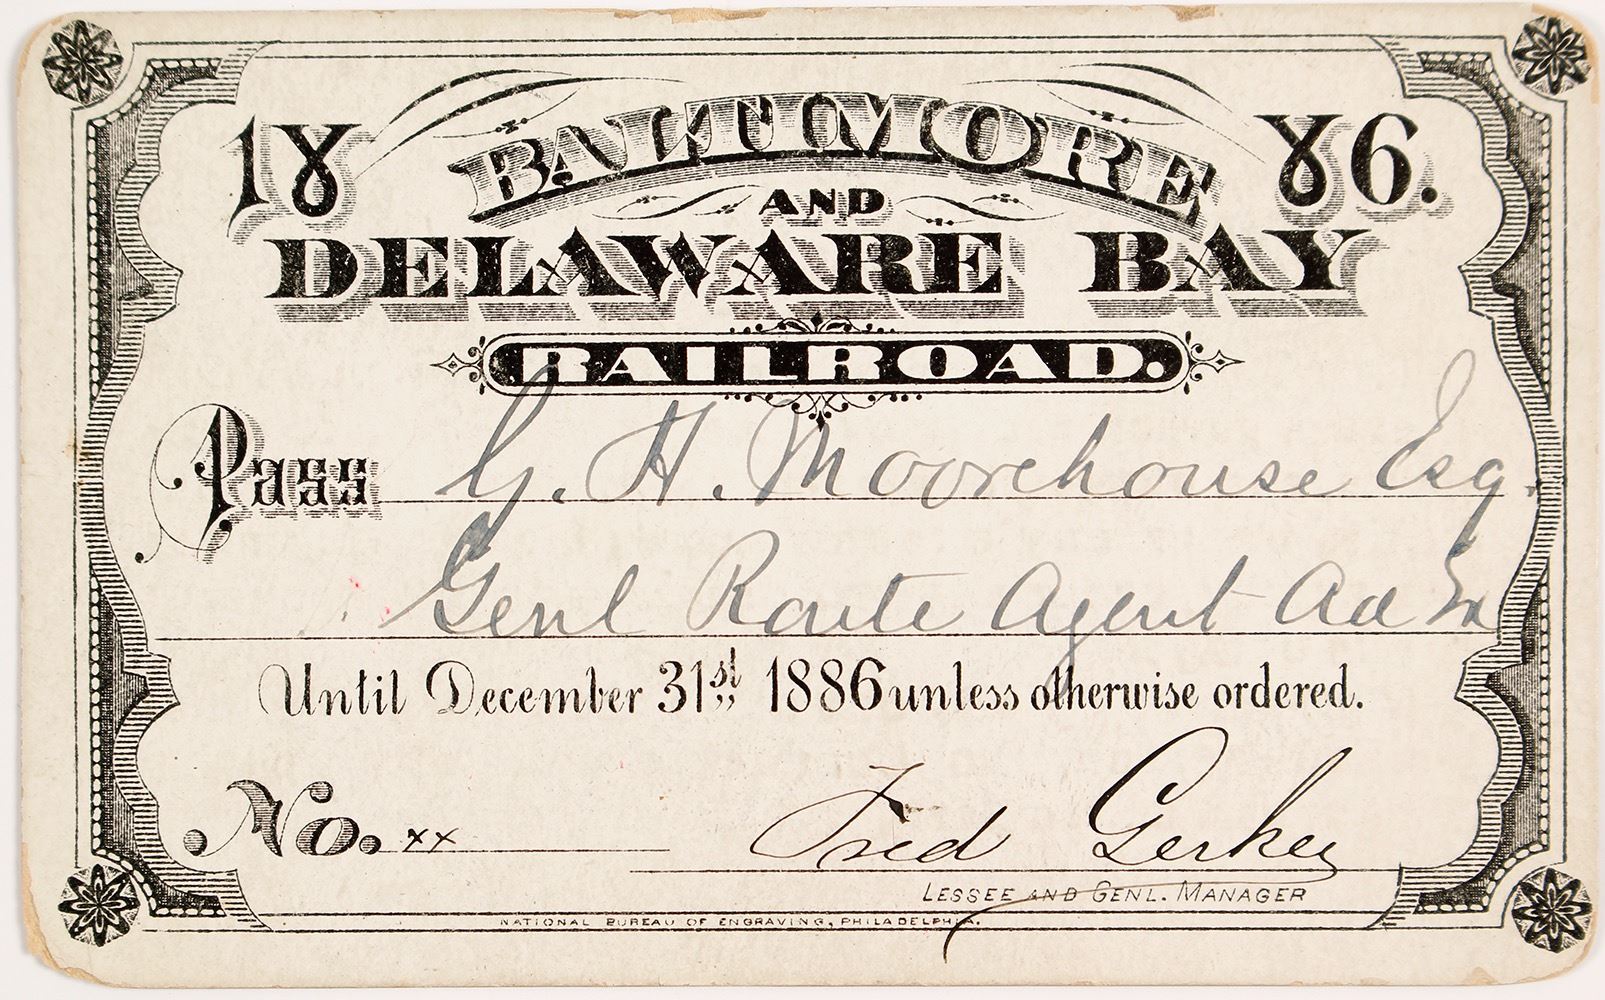 1886.
BALTIMORE
AND
DELAWARE BAY
RAILROAD.
Pass G. H. Moorehouse Esq.
Genl Route Agent Ad Ex
Until December 31st 1886 unless otherwise ordered.
No. xx
Fred Gerkey
LESSEE AND GENL. MANAGER
NATIONAL BUREAU OF ENGRAVING, PHILADELPHIA.